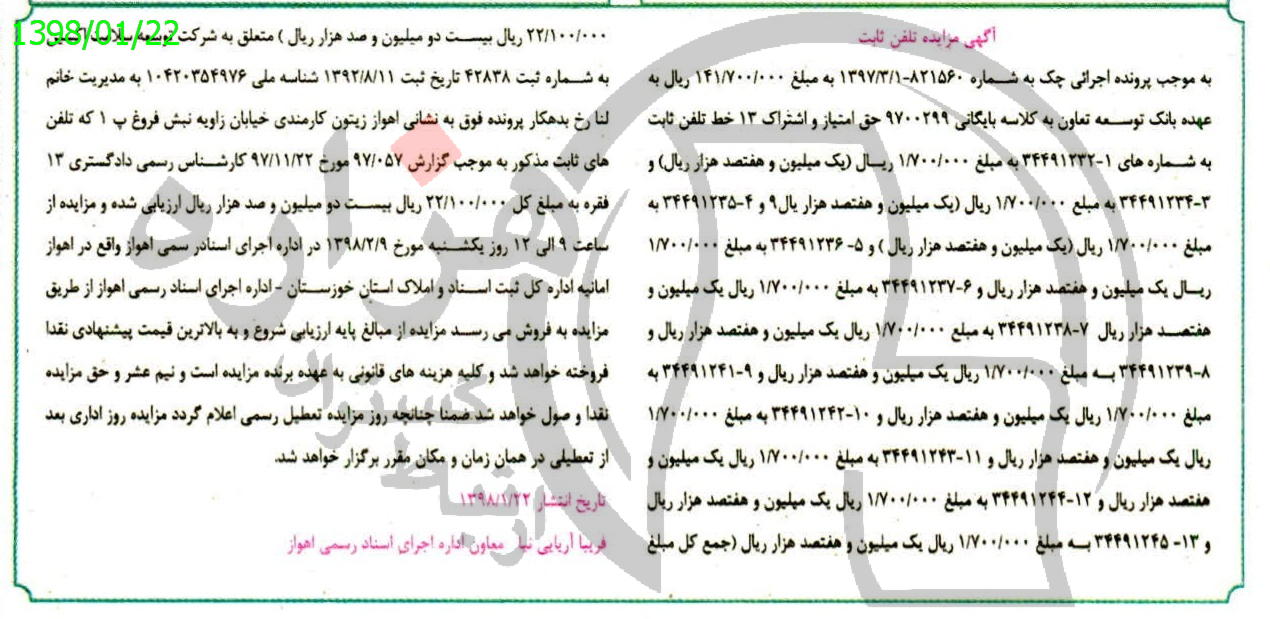 1398/01/22
آگهی مزایده تلفن ثابت
به موجب پرونده اجرائی چک به شماره ۸۲۱۵۶۰-۱۳۹۷/۳/۱ به مبلغ ۱۴۱/۷۰۰/۰۰۰ ریال به
عهده بانک توسعه تعاون به کلاسه بایگانی ۹۷۰۰۲۹۹ حق امتیاز و اشتراک ۱۳ خط تلفن ثابت
به شماره های ۱-۳۴۴۹۱۲۳۲ به مبلغ ۱/۷۰۰/۰۰۰ ریال (یک میلیون و هفتصد هزار ریال) و
۳-۳۴۴۹۱۲۳۴ به مبلغ ۱/۷۰۰/۰۰۰ ریال (یک میلیون و هفتصد هزار یال۹ و ۴-۳۴۴۹۱۲۳۵ به
مبلغ ۱/۷۰۰/۰۰۰ ریال (یک میلیون و هفتصد هزار ریال ) و ۵- ۳۴۴۹۱۲۳۶ به مبلغ ۱/۷۰۰/۰۰۰
ریال یک میلیون و هفتصد هزار ریال و ۶-۳۴۴۹۱۲۳۷ به مبلغ ۱/۷۰۰/۰۰۰ ریال یک میلیون و
هفتصد هزار ریال ۷-۳۴۴۹۱۲۳۸ به مبلغ ۱/۷۰۰/۰۰۰ ریال یک میلیون و هفتصد هزار ریال و
۸-۳۴۴۹۱۲۳۹ به مبلغ ۱/۷۰۰/۰۰۰ ریال یک میلیون و هفتصد هزار ریال و ۹-۳۴۴۹۱۲۴۱ به
مبلغ ۱/۷۰۰/۰۰۰ ریال یک میلیون و هفتصد هزار ریال و ۱۰-۳۴۴۹۱۲۴۲ به مبلغ ۱/۷۰۰/۰۰۰
ریال یک میلیون و هفتصد هزار ریال و ۱۱-۳۴۴۹۱۲۴۳ به مبلغ ۱/۷۰۰/۰۰۰ ریال یک میلیون و
هفتصد هزار ریال و ۱۲-۳۴۴۹۱۲۴۴ به مبلغ ۱/۷۰۰/۰۰۰ ریال یک میلیون و هفتصد هزار ریال
و ۱۳- ۳۴۴۹۱۲۴۵ به مبلغ ۱/۷۰۰/۰۰۰ ریال یک میلیون و هفتصد هزار ریال (جمع کل مبلغ
۲۲/۱۰۰/۰۰۰ ریال بیست دو میلیون و صد هزار ریال ) متعلق به شرکت توسعه سلامت
به شماره ثبت ۴۲۸۳۸ تاریخ ثبت ۱۳۹۲/۸/۱۱ شناسه ملی ۱۰۴۲۰۳۵۴۹۷۶ به مدیریت خانم
لنا رخ بدهکار پرونده فوق به نشانی اهواز زیتون کارمندی خیابان زاویه نبش فروغ پ ۱ که تلفن
های ثابت مذکور به موجب گزارش ۹۷/۰۵۷ مورخ ۹۷/۱۱/۲۲ کارشناس رسمی دادگستری ۱۳
فقره به مبلغ کل ۲۲/۱۰۰/۰۰۰ ریال بیست دو میلیون و صد هزار ریال ارزیابی شده و مزایده از
ساعت ۹ الی ۱۲ روز یکشنبه مورخ ۱۳۹۸/۲/۹ در اداره اجرای اسنادر سمی اهواز واقع در اهواز
امانیه اداره کل ثبت اسناد و املاک استان خوزستان - اداره اجرای اسناد رسمی اهواز از طریق
مزایده به فروش می رسد مزایده از مبالغ پایه ارزیابی شروع و به بالاترین قیمت پیشنهادی نقدا
فروخته خواهد شد و کلیه هزینه های قانونی به عهده برنده مزایده است و نیم عشر و حق مزایده
نقدا و صول خواهد شد ضمنا چنانچه روز مزایده تعطیل رسمی اعلام گردد مزایده روز اداری بعد
از تعطیلی در همان زمان و مکان مقرر برگزار خواهد شد.
تاریخ انتشار ۱۳۹۸/۱/۲۲
فریبا آریایی نیا معاون اداره اجرای اسناد رسمی اهواز
هزاره
گستران
ارتباط